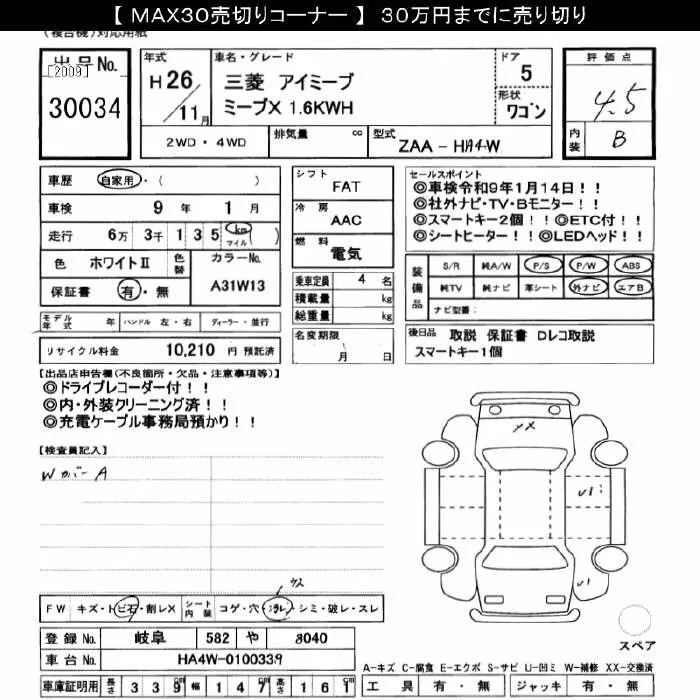 【 MAX30売切りコーナー 】 30万円までに売り切り
(複合機)対応用紙
出品No.
[2009]
30034
年式
H 26
11月
車名・グレード
三菱 アイミーブ
ミーブX 1.6KWH
ドア
5
形状
ワゴン
評価点
4.5
内装
B
2WD ・ 4WD
排気量 cc
型式 ZAA - HA4W
車歴 自家用・( )
車検 9 年 1 月
走行 6万 3千 1 3 5 km マイル ( )
色 ホワイトⅡ 色替
カラーNo.
A31W13
保証書 有・無
モデル年式 年 ハンドル 左・右 ディーラー・並行
リサイクル料金 10,210 円 預託済
シフト
FAT
冷房
AAC
燃料
電気
乗車定員 4 名
積載量 kg
総重量 kg
名変期限
月 日
セールスポイント
◎車検令和9年1月14日！！
◎社外ナビ・TV・Bモニター！！
◎スマートキー2個！！◎ETC付！！
◎シートヒーター！！◎LEDヘッド！！
装備品
S/R 純A/W P/S P/W ABS
純TV 純ナビ 革シート 外ナビ エアB
ナビ型番:
後日品 取説 保証書 Dレコ取説
スマートキー1個
【出品店申告欄(不良箇所・欠品・注意事項等)】
◎ドライブレコーダー付！！
◎内・外装クリーニング済！！
◎充電ケーブル事務局預かり！！
【検査員記入】
Wカバー A
FW キズ・トビ石・割レX シート内装 コゲ・穴・スレ・シミ・破レ・スレ
登録 No. 岐阜 582 や 8040
車台 No. HA4W-0100339
車庫証明用 長さ 3 3 9 cm 幅 1 4 7 cm 高さ 1 6 1 cm
スペア
A-キズ C-腐食 E-エクボ S-サビ U-凹ミ W-補修 XX-交換済
工具 有・無 ジャッキ 有・無